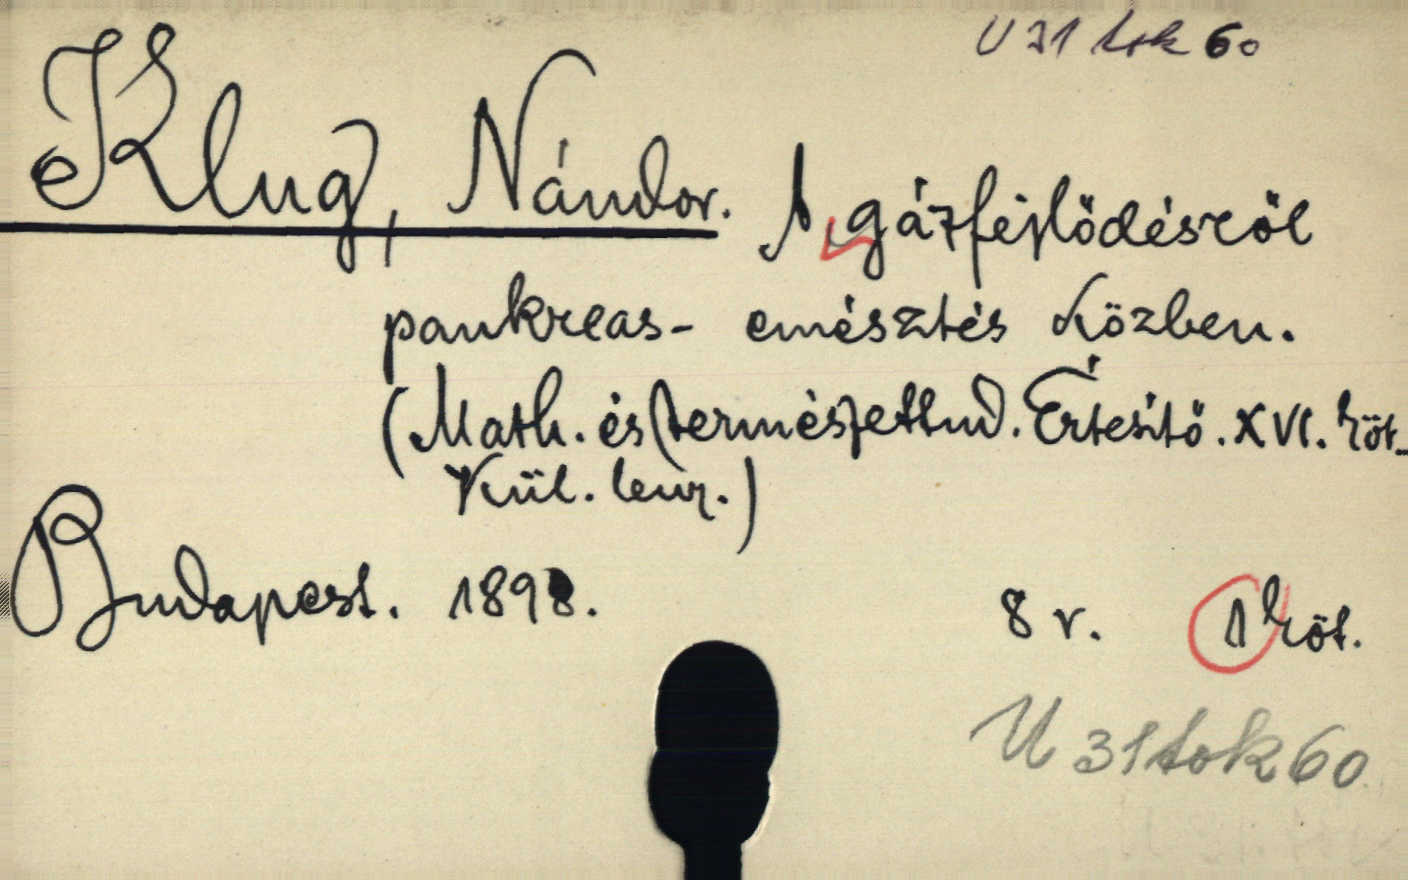 U 31 tok 60
Klug, Nándor. A gázfejlődésről
pankreas- emésztés közben.
(Math. és természettud. Értesítő. XVI. köt.
Kül. leny.)
Budapest. 1898. 8 r. 1 köt.
U 31 tok 60